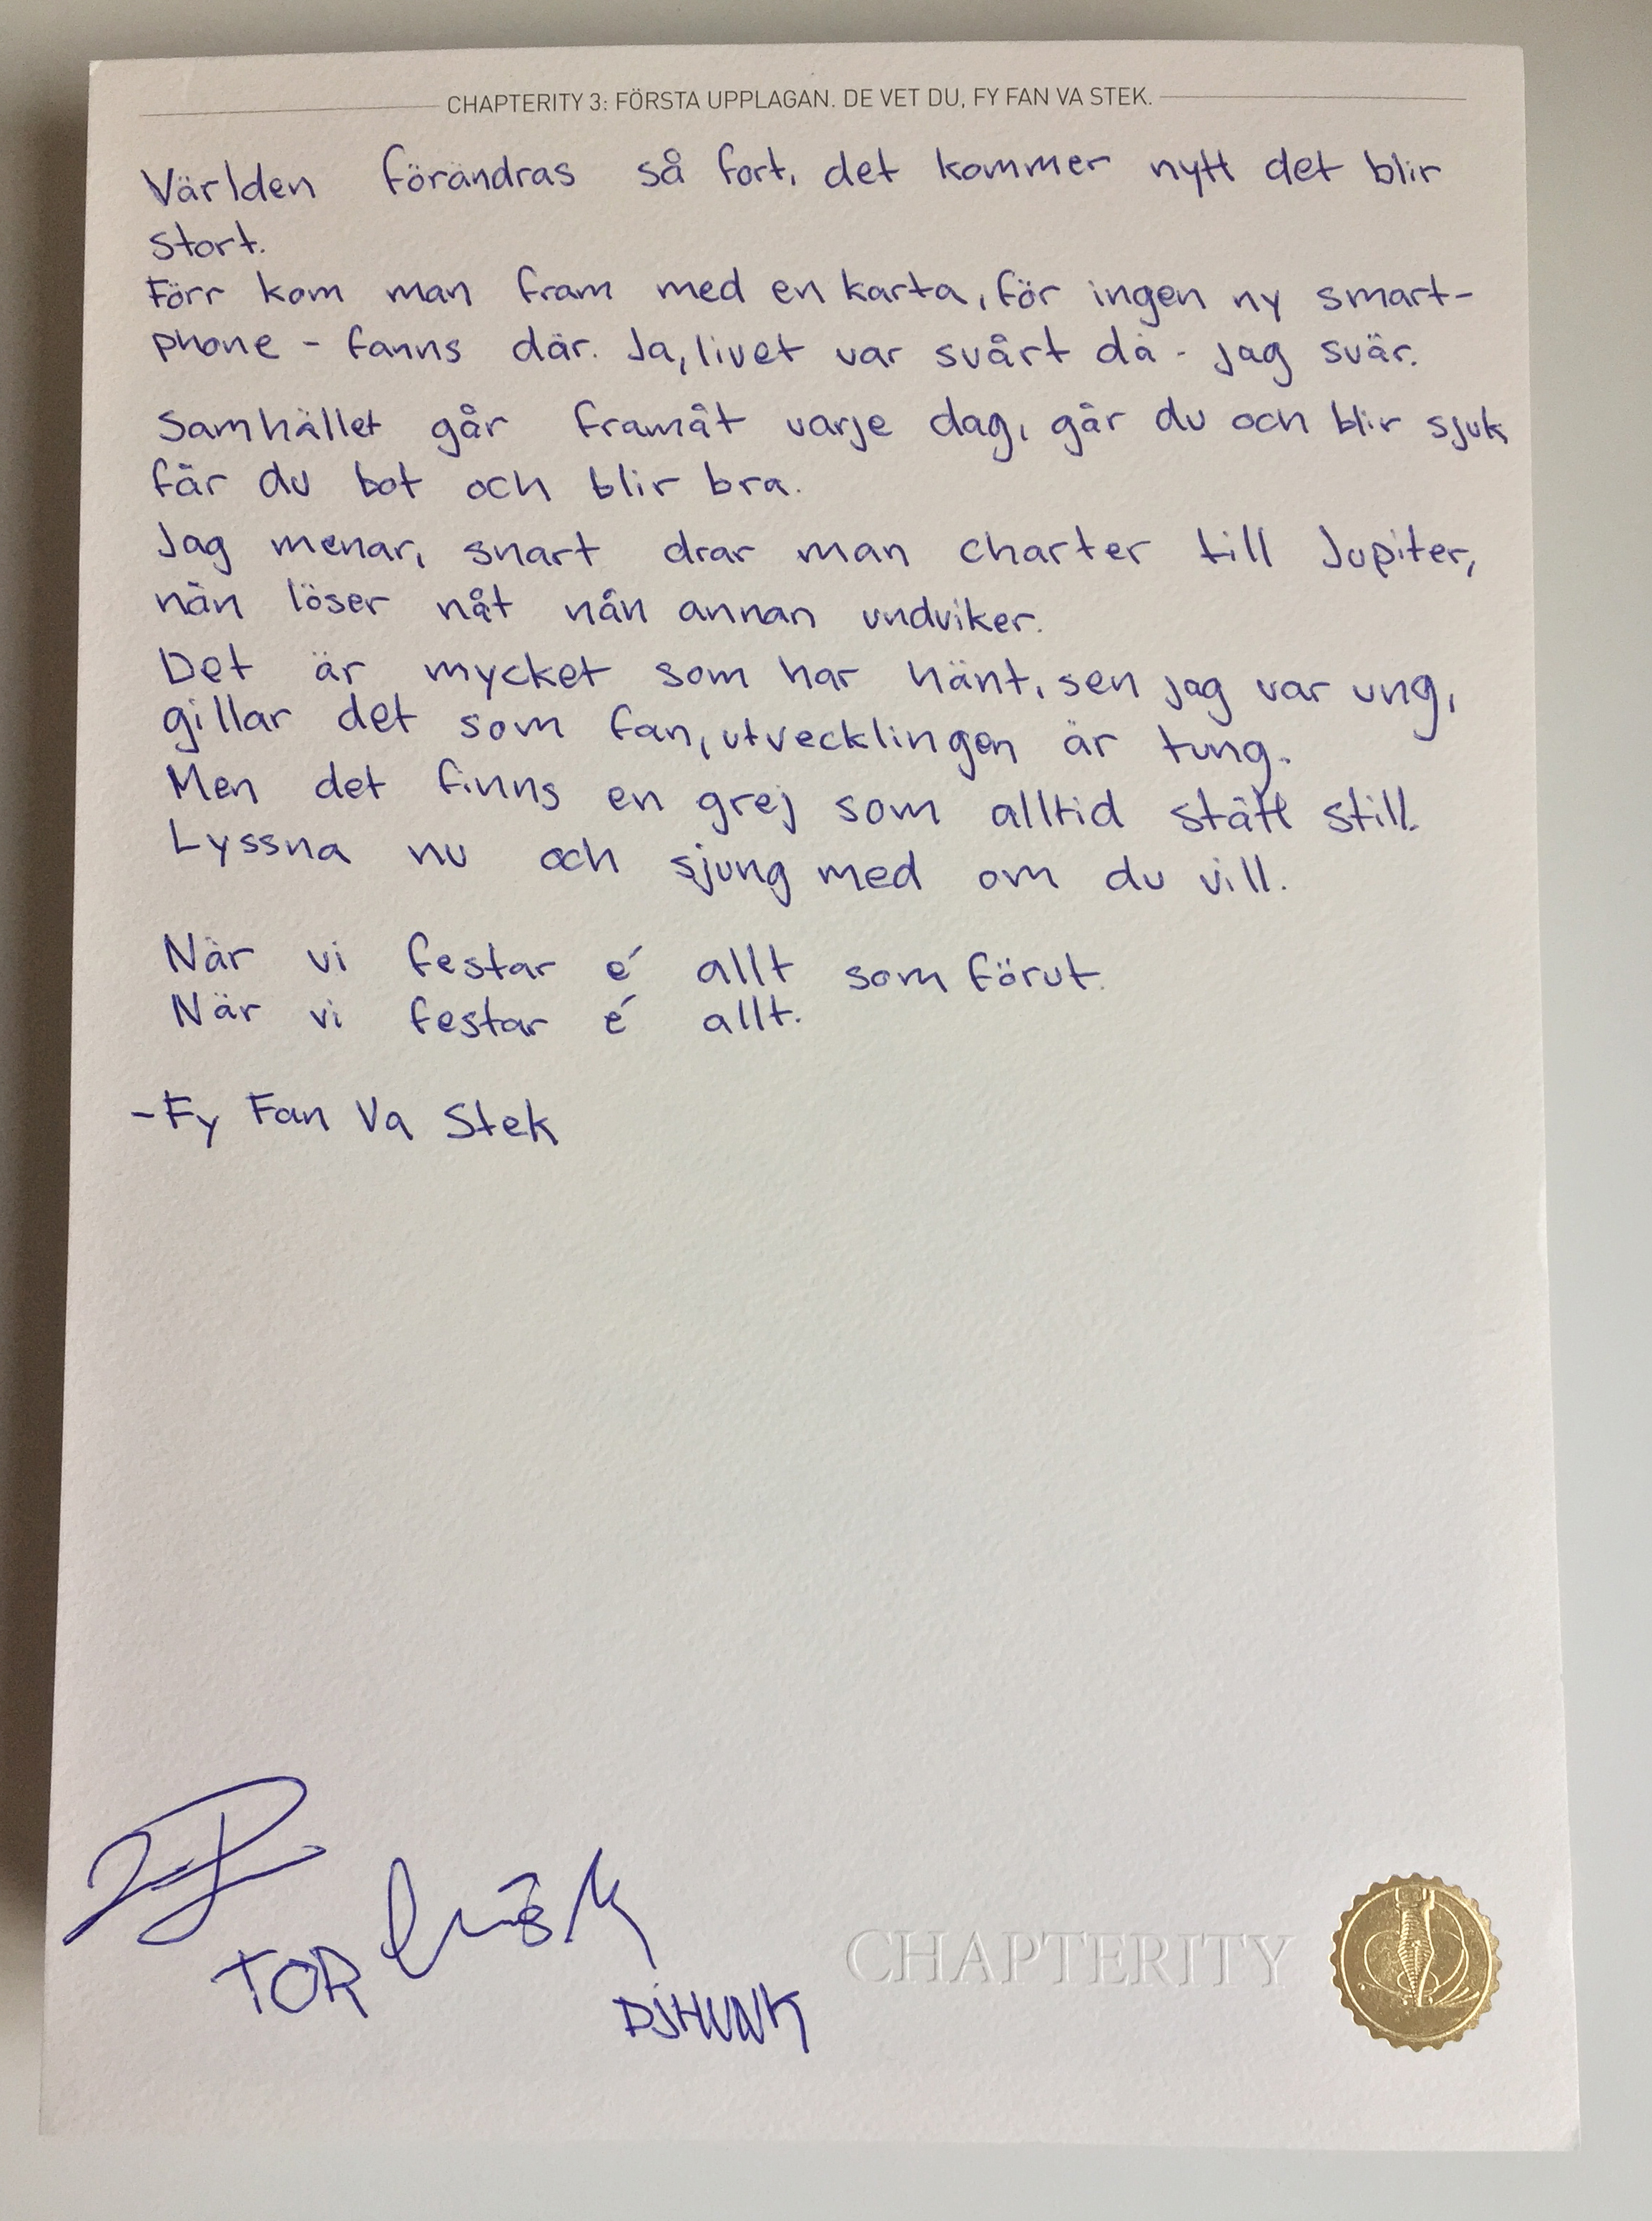 CHAPTERITY 3: FÖRSTA UPPLAGAN. DE VET DU, FY FAN VA STEK.
Världen förändras så fort, det kommer nytt det blir
stort.
Förr kom man fram med en karta, för ingen ny smart-
phone - fanns där. Ja, livet var svårt då - jag svär.
Samhället går framåt varje dag, går du och blir sjuk
får du bot och blir bra.
Jag menar, snart drar man charter till Jupiter,
nån löser nåt nån annan undviker.
Det är mycket som har hänt, sen jag var ung,
gillar det som fan, utvecklingen är tung.
Men det finns en grej som alltid stått still.
Lyssna nu och sjung med om du vill.
När vi festar é allt som förut.
När vi festar é allt.
-Fy Fan Va Stek
TOR
DJHUNK
CHAPTERITY